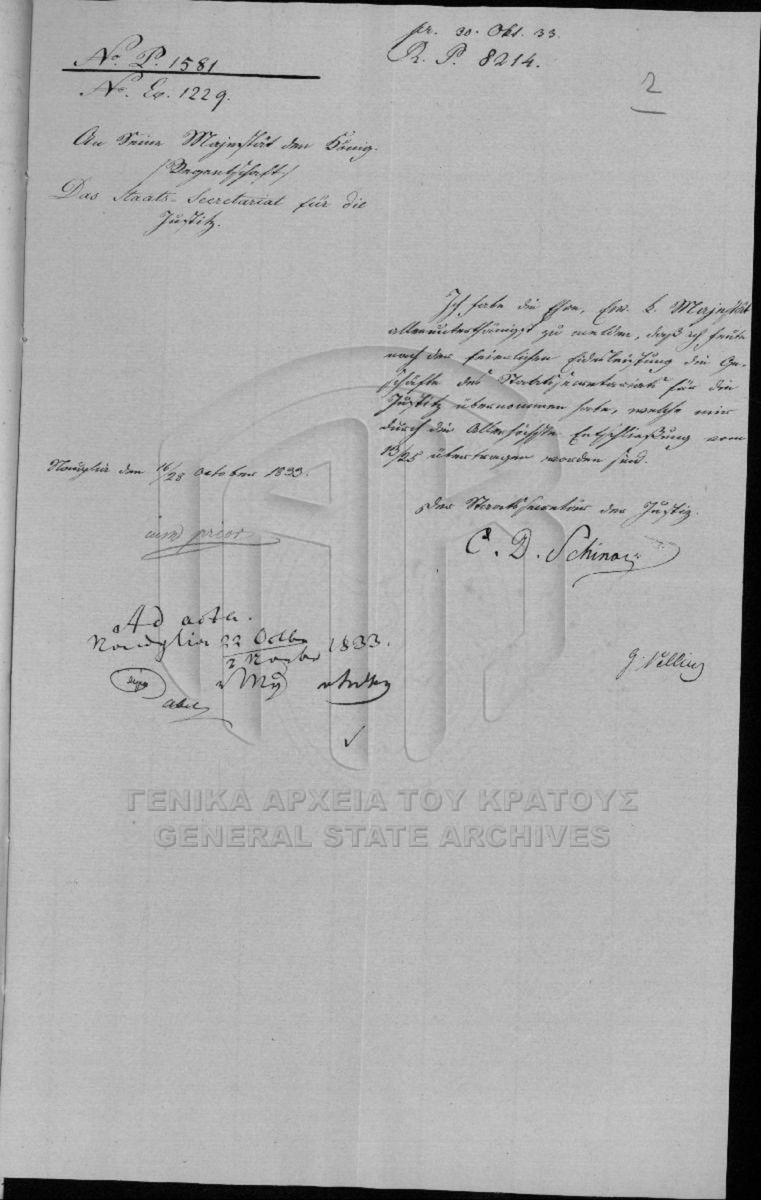 pr. 30. Okt. 33.
R. P. 8214.
2
No. P. 1581
No. Ex. 1229.
An Seine Majestät den König.
/Regentschaft/
Das Staats-Secretariat für die
Justitz.
Ich habe die Ehre, Ew. k. Majestät
allerunterthänigst zu melden, daß ich heute
nach der feierlichen Eidesleistung die Ge-
schäfte des Staatssecretariats für die
Justitz übernommen habe, welche mir
durch die Allerhöchste Entschließung vom
13/25 übertragen worden sind.
Nauplia den 16/28 October 1833.
Der Staatssecretär der Justiz.
C. D. Schinas
cum prior
Ad acta.
Nauplia 22 Octbr
2 Novbr 1833.
Abel
ΓΕΝΙΚΑ ΑΡΧΕΙΑ ΤΟΥ ΚΡΑΤΟΥΣ
GENERAL STATE ARCHIVES